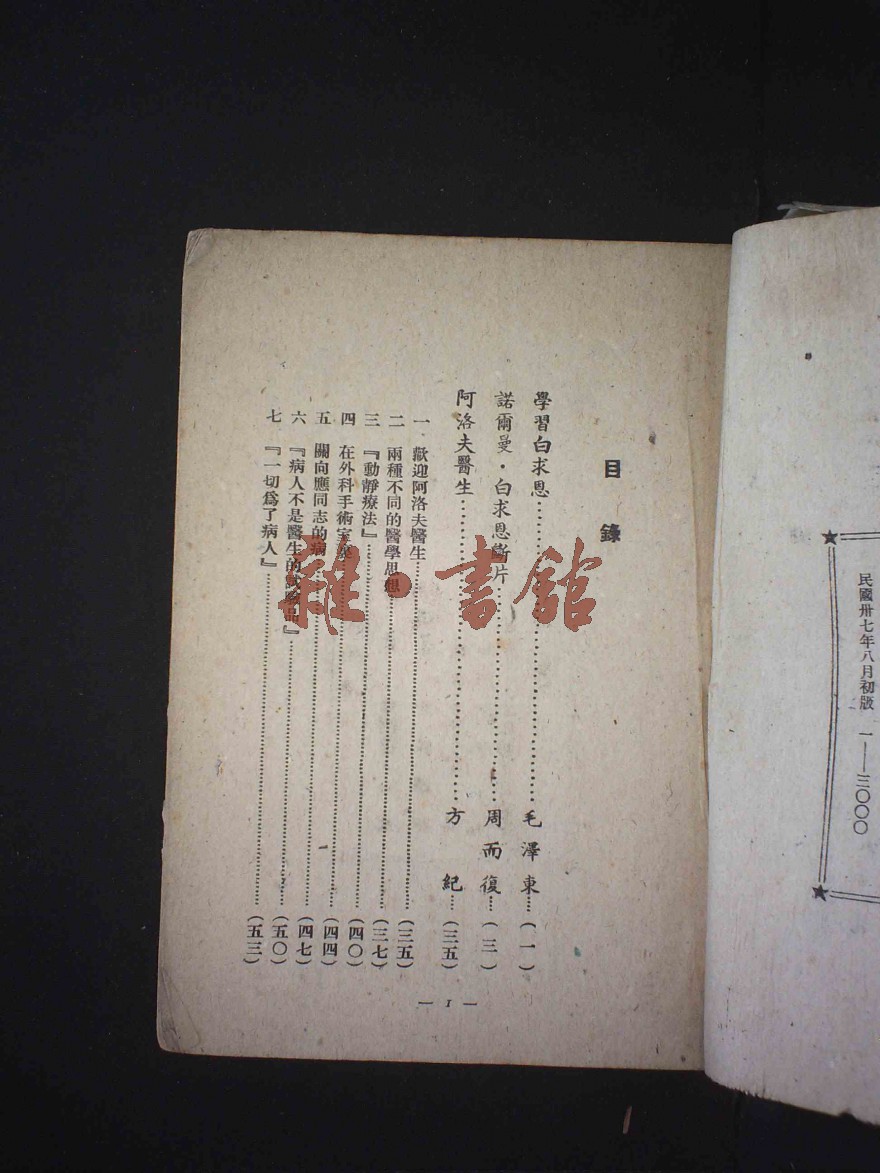 民國卅七年八月初版　一——三〇〇〇
目錄
學習白求恩……毛澤東…(一)
諾爾曼·白求恩斷片……周而復…(三)
阿洛夫醫生……方　紀…(三五)
一　歡迎阿洛夫醫生……(三五)
二　兩種不同的醫學思想……(三七)
三　『動靜療法』……(四〇)
四　在外科手術室裏……(四四)
五　關向應同志的病……(四七)
六　『病人不是醫生的試驗品』……(五〇)
七　『一切爲了病人』……(五三)
— I —
雜·書館